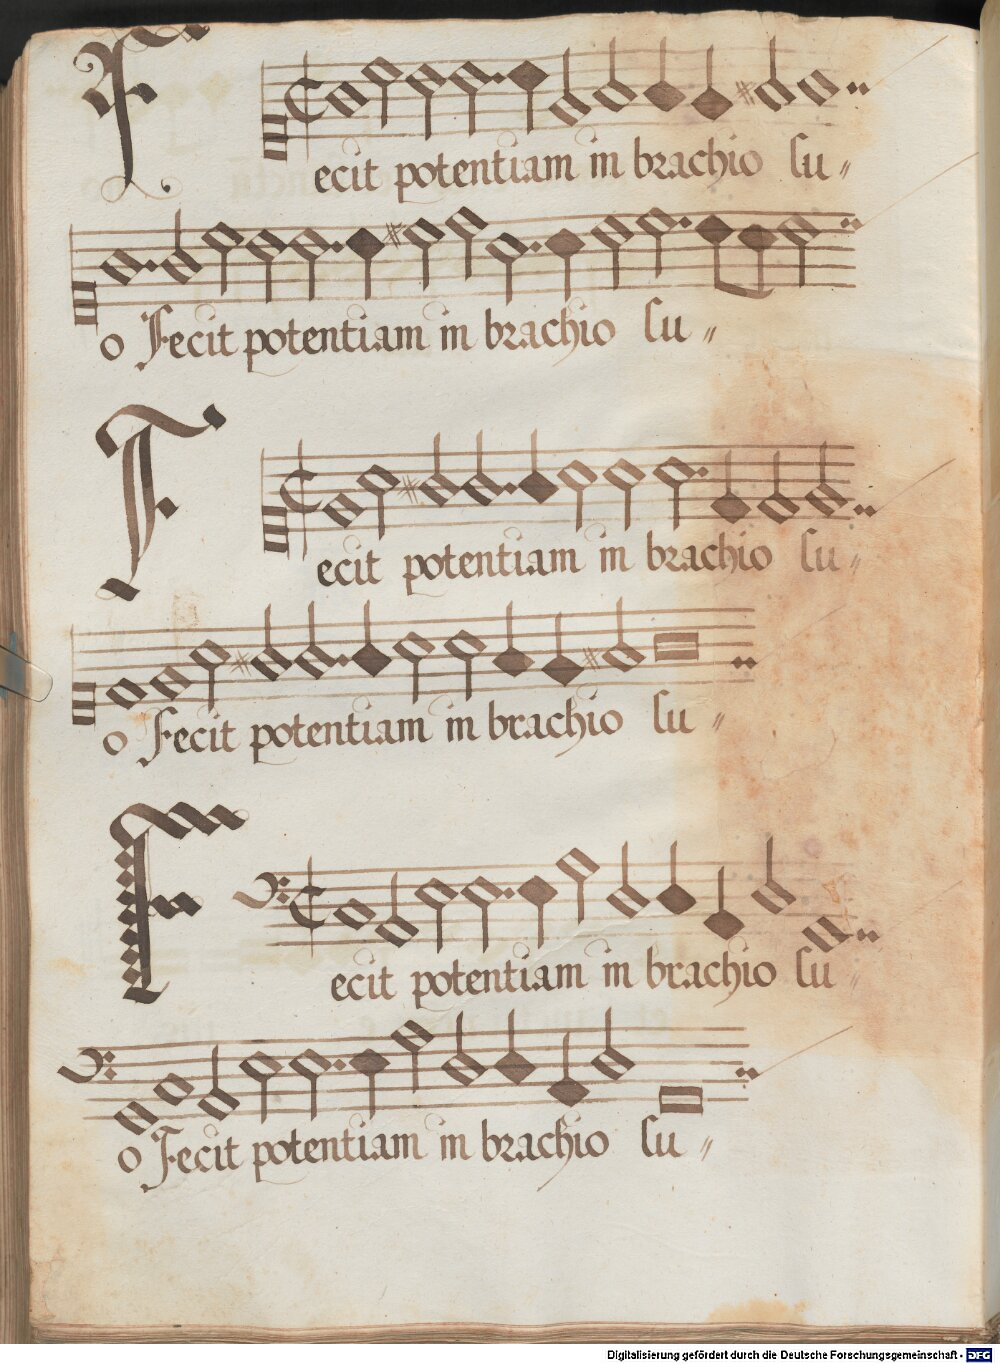 Fecit potentiam in brachio su〃
o Fecit potentiam in brachio su〃
Fecit potentiam in brachio su〃
o Fecit potentiam in brachio su〃
Fecit potentiam in brachio su〃
o Fecit potentiam in brachio su〃
Digitalisierung gefördert durch die Deutsche Forschungsgemeinschaft - DFG